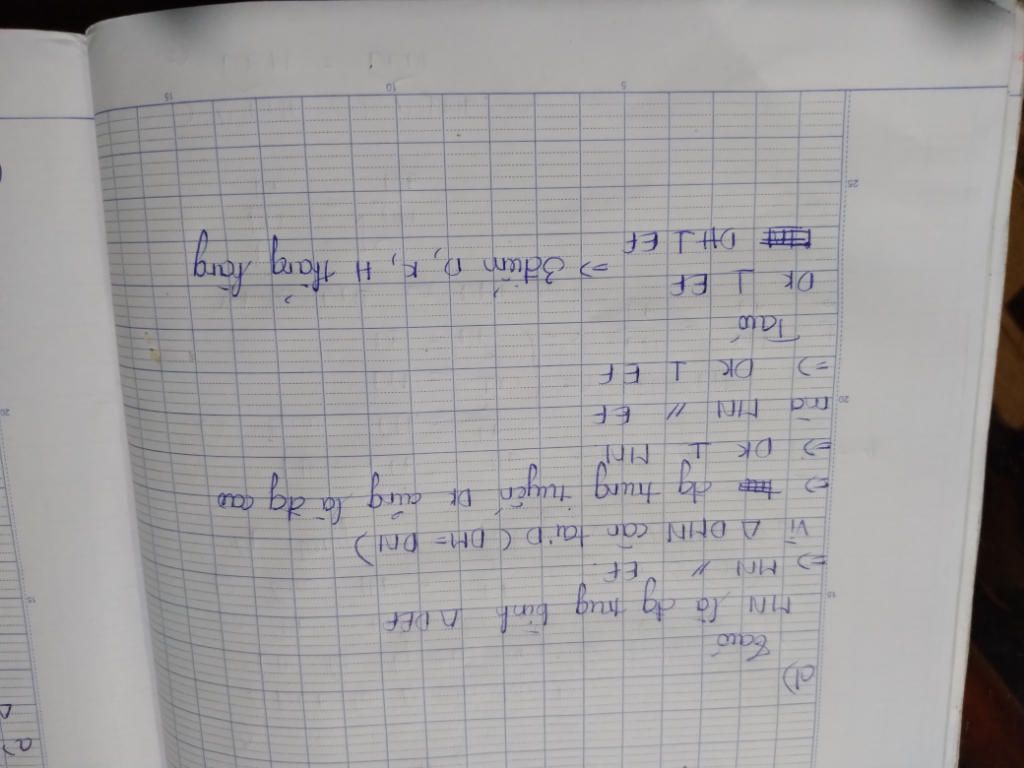 d)
Ta có
MN là đg trug bình △ DEF
=> MN // EF
Vì △ DMN cân tại D ( DM = DN )
=> đg trung tuyến DK cũng là đg cao
=> DK ⊥ MN
mà MN // EF
=> DK ⊥ EF
Ta có
DK ⊥ EF
DH ⊥ EF
=> 3 điểm D, K, H thẳng hàng
a)
5
10
15
15
20
25
15
20